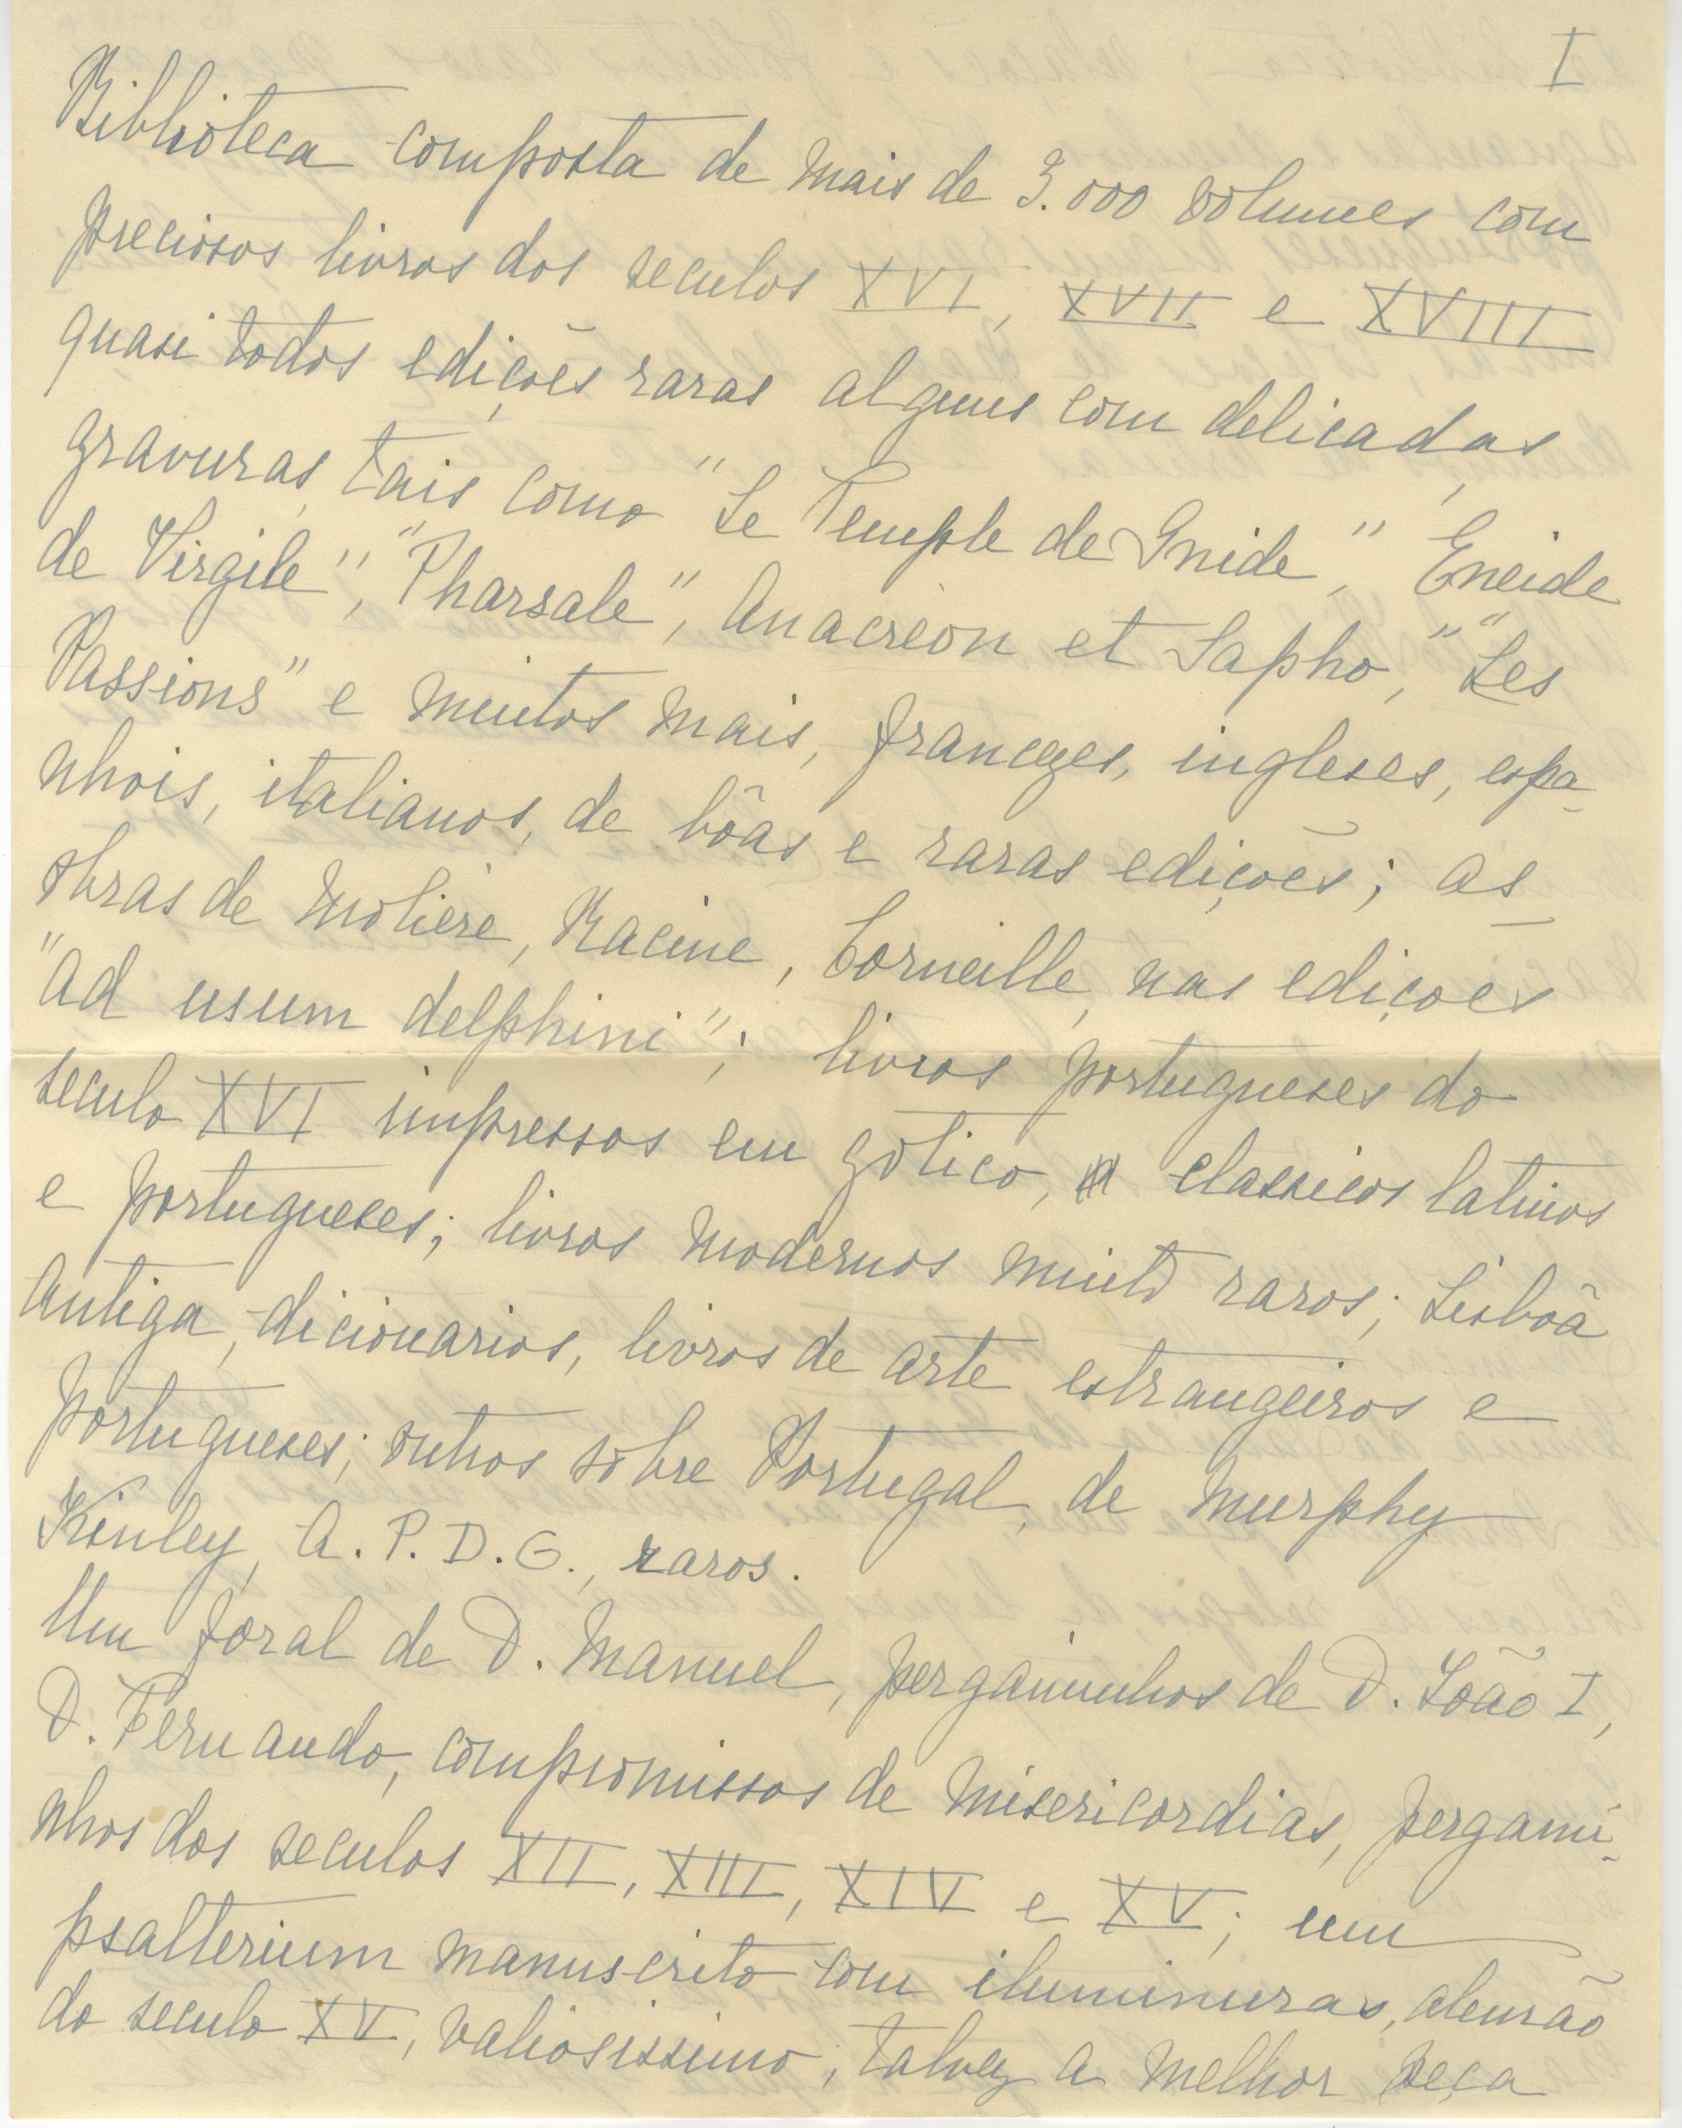 I
Biblioteca composta de mais de 3.000 volumes com
preciosos livros dos seculos XVI, XVII e XVIII
quasi todos edições raras alguns com delicadas
gravuras, tais como "Le Temple de Gnide", "Eneide
de Virgile", "Pharsale", Anacréon et Sapho", "Les
Passions" e muitos mais, francezes, ingleses, espa-
nhois, italianos, de bôas e raras edições; as
obras de Molière, Racine, Corneille, nas edições
"ad usum delphini"; livros portugueses do
seculo XVI impressos em gotico, classicos latinos
e portugueses; livros modernos muito raros; Lisbôa
antiga, dicionarios, livros de arte estrangeiros e
portugueses; outros sobre Portugal, de Murphy
Kinley, A.P.D.G., raros.
Um foral de D. Manuel, pergaminhos de D. João I,
D. Fernando, compromissos de Misericordias, pergami-
nhos dos seculos XII, XIII, XIV e XV; um
psalterium manuscrito com iluminuras, alemão
do seculo XV, valiosissimo, talvez a melhor peça